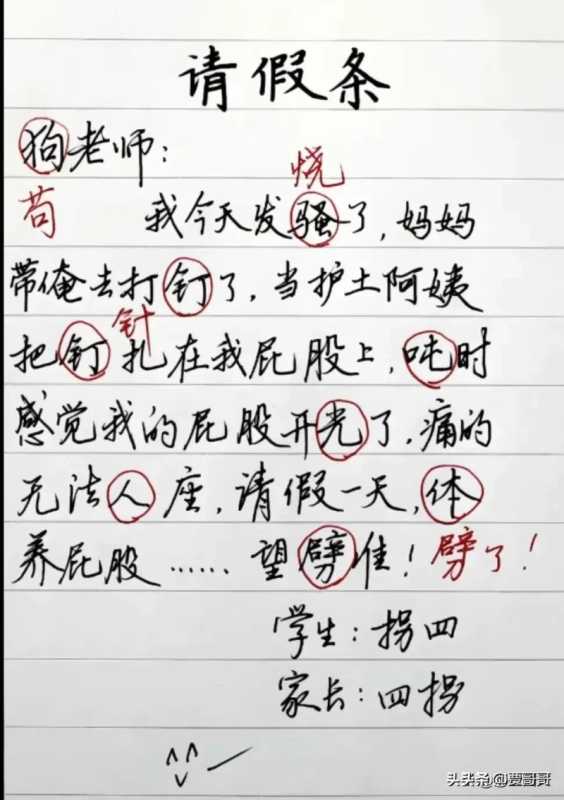 请假条
狗老师：
烧
苟
我今天发骚了，妈妈
带俺去打钉了，当护士阿姨
针
把钉扎在我屁股上，吨时
感觉我的屁股开光了，痛的
无法人座，请假一天，体
养屁股……望劈准！劈了！
学生：拐四
家长：四拐
头条@贾哥哥